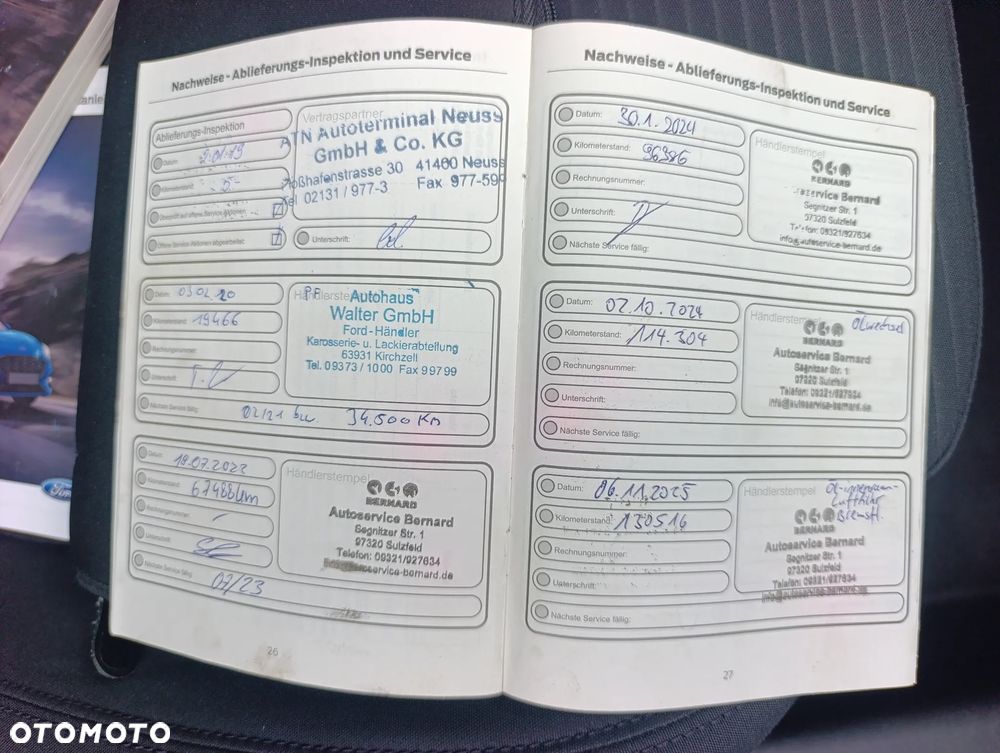 Nachweise - Ablieferungs-Inspektion und Service
Ablieferungs-Inspektion
Datum:
Kilometerstand:
Überprüft auf offene Service-Aktionen
Offene Service-Aktionen abgearbeitet:
Vertragspartner
ATN Autoterminal Neuss
GmbH & Co. KG
Floßhafenstrasse 30 41460 Neuss
Tel 02131 / 977-3 Fax 977-599
Unterschrift:
Datum: 03.02.20
Kilometerstand: 19466
Rechnungsnummer:
Unterschrift:
Nächste Service fällig: 02/21 bzw. 34.500 Km
Autohaus
Walter GmbH
Ford-Händler
Karosserie- u. Lackierabteilung
63931 Kirchzell
Tel. 09373 / 1000 Fax 99799
Datum: 19.07.2022
Kilometerstand: 67488km
Rechnungsnummer:
Unterschrift:
Nächste Service fällig: 07/23
Händlerstempel
BERNARD
Autoservice Bernard
Segnitzer Str. 1
97320 Sulzfeld
Telefon: 09321/927634
26
Nachweise - Ablieferungs-Inspektion und Service
Datum: 30.1.2024
Kilometerstand: 96386
Rechnungsnummer:
Unterschrift:
Nächste Service fällig:
Händlerstempel
BERNARD
Autoservice Bernard
Segnitzer Str. 1
97320 Sulzfeld
Telefon: 09321/927634
info@autoservice-bernard.de
Datum: 02.10.2024
Kilometerstand: 114.304
Rechnungsnummer:
Unterschrift:
Nächste Service fällig:
Händlerstempel
Ölwechsel
BERNARD
Autoservice Bernard
Segnitzer Str. 1
97320 Sulzfeld
Telefon: 09321/927634
info@autoservice-bernard.de
Datum: 06.11.2025
Kilometerstand: 130516
Rechnungsnummer:
Unterschrift:
Nächste Service fällig:
Händlerstempel
Luftfilter
Bremsfl.
BERNARD
Autoservice Bernard
Segnitzer Str. 1
97320 Sulzfeld
Telefon: 09321/927634
27
Ford
OTOMOTO